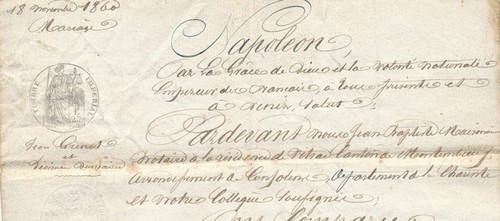 18 novembre 1860
Mariage
TIMBRE IMPERIAL
Jean
et
Napoléon,
Par la Grâce de Dieu et la volonté nationale
Empereur des Français, à tous présents et
à venir, Salut;
Pardevant nous Jean Baptiste
Notaire à la résidence de Vitrac Canton de Montembœuf
arrondissement de Confolens, département de la Charente
et notre Collègue soussignés